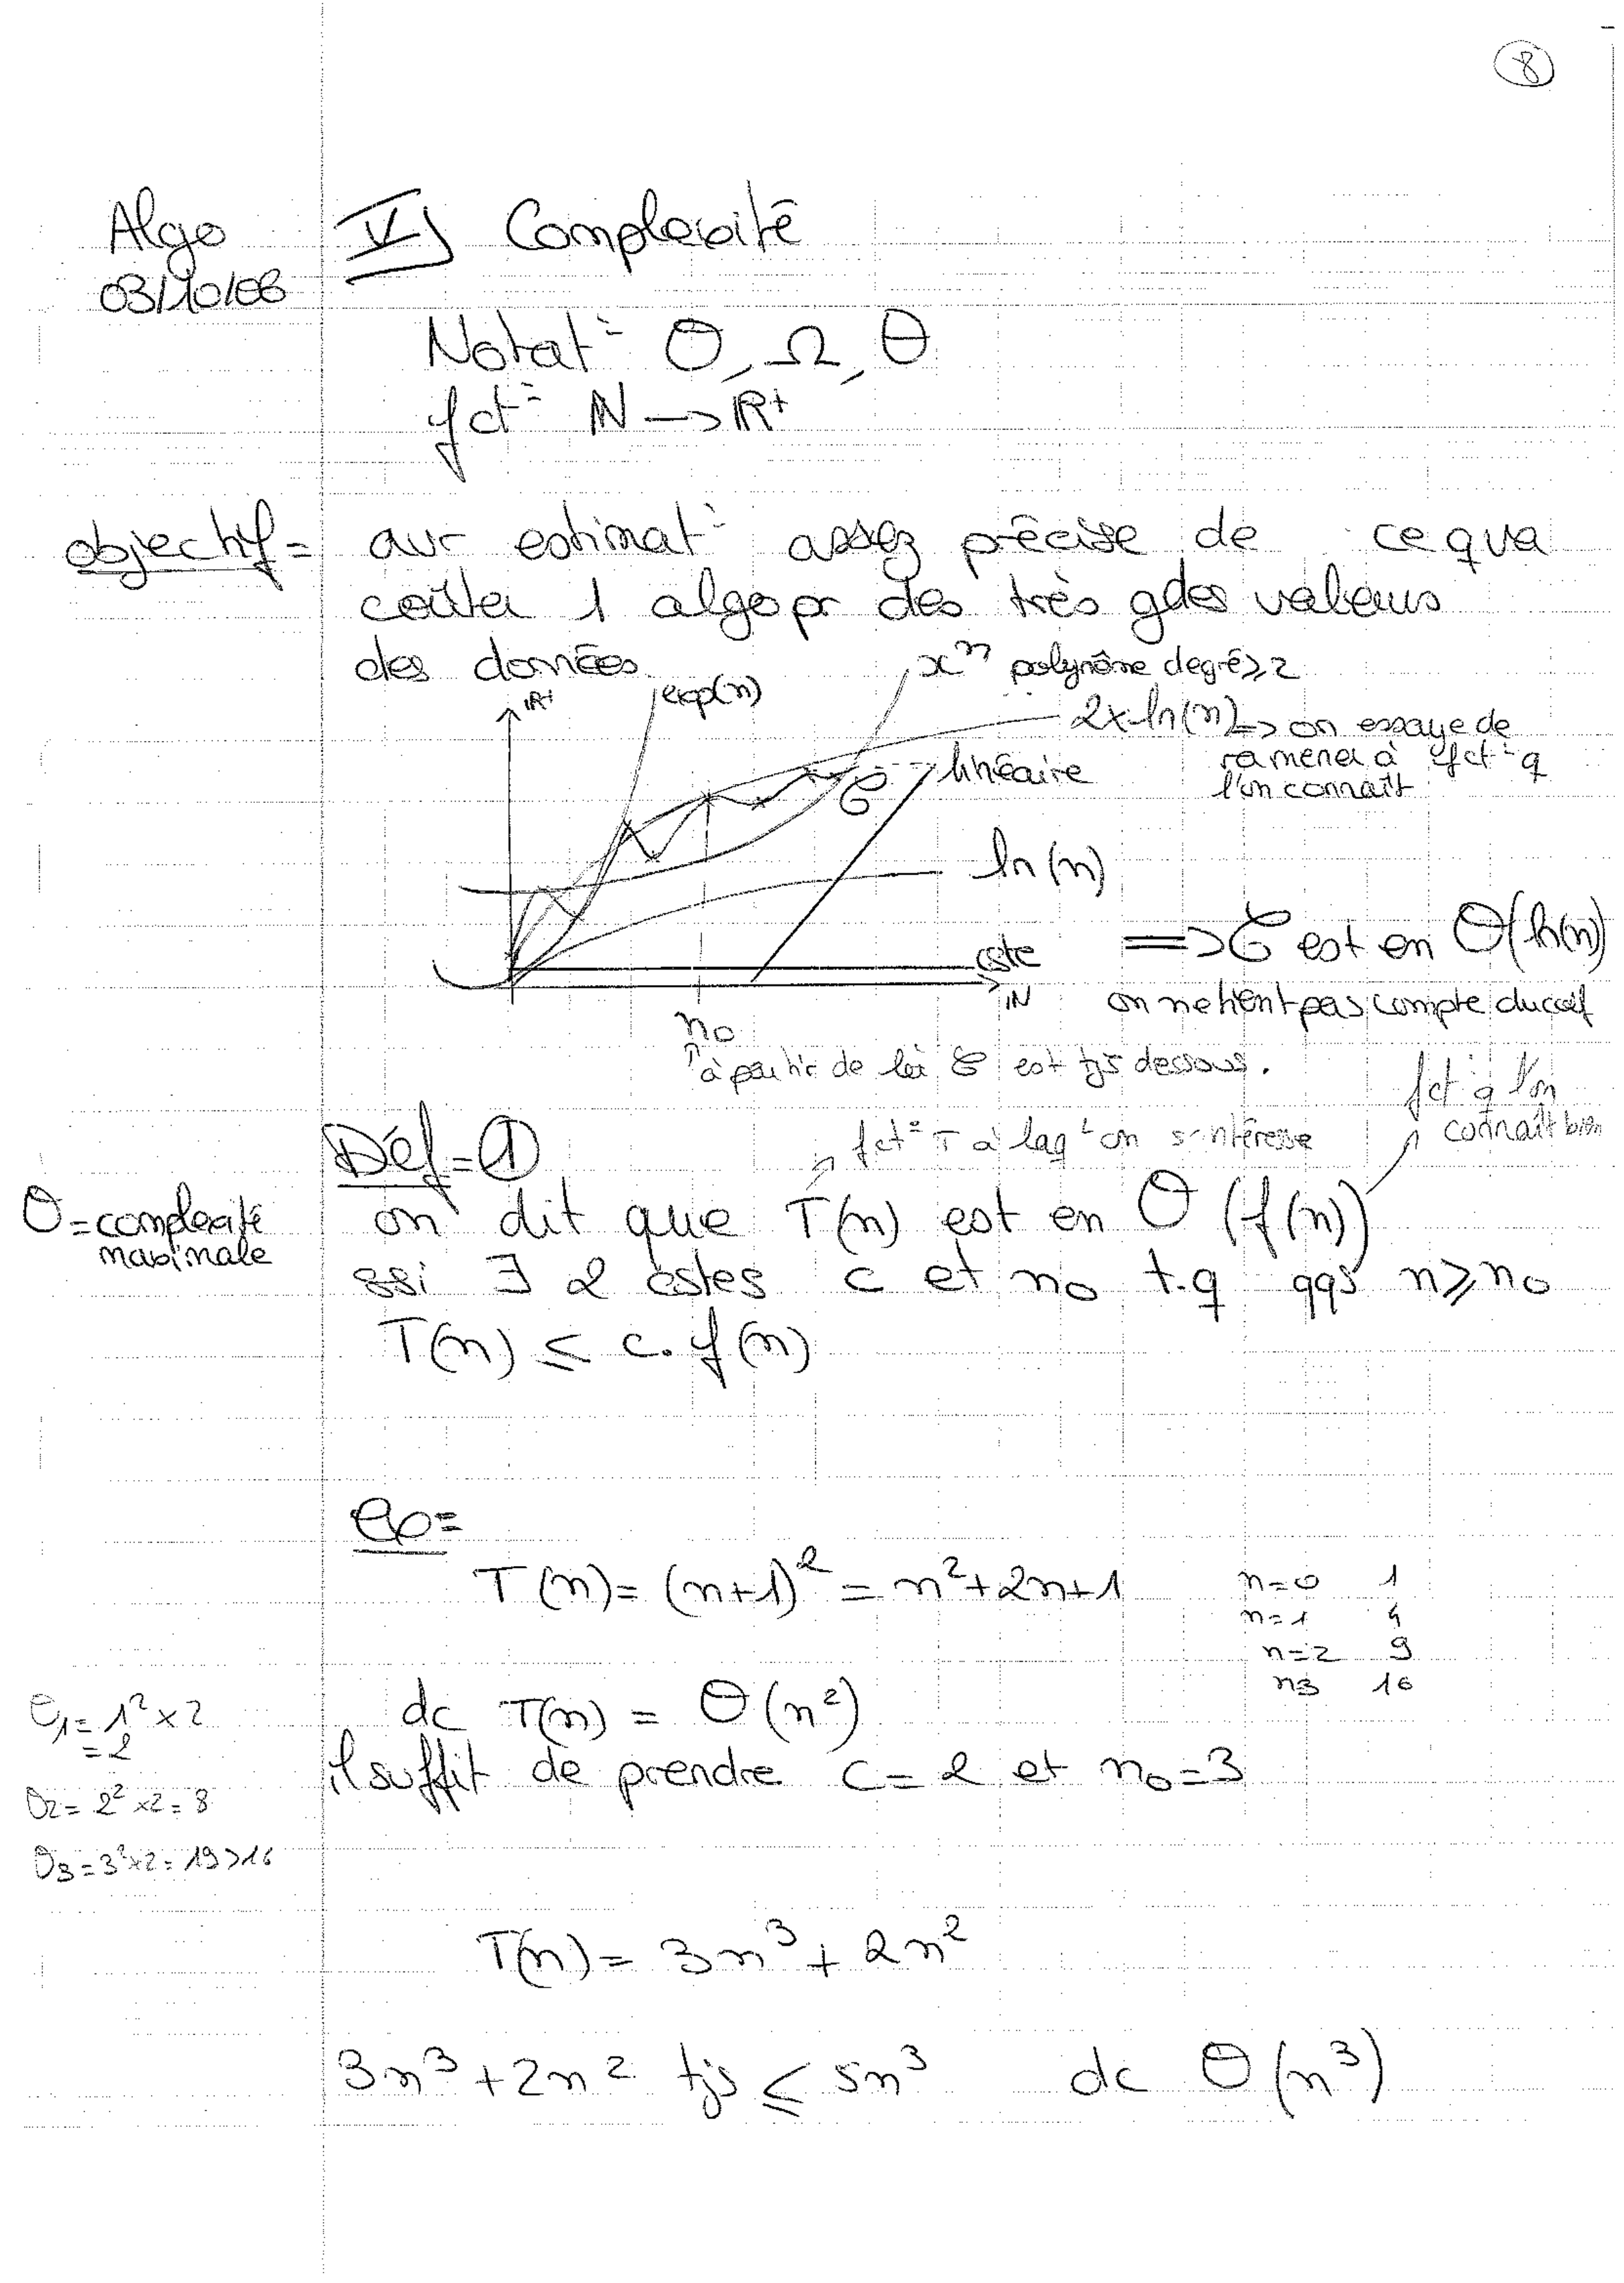 8
Algo
03/10/06
IV) Complexité
Notat° O, Ω, Θ
fct° ℕ → ℝ+
objectif = avr estimat° assez précise de ce qva
coûter 1 algo pr des très gdes valeurs
des données
ℝ+
exp(n)
x^n polynôme degré ≥ 2
2x ln(n) => on essaye de
ramener à fct° q
l'on connaît
linéaire
C
ln(n)
cste
ℕ
=> C est en O(ln(n)
on ne tient pas compte du coef
n₀
à partir de là C est tjs dessous.
Déf = ①
fct° T à laq^l on s'intéresse
fct° q l'on
connaît bien
O = complexité
maximale
on dit que T(n) est en O (f(n))
ssi ∃ 2 cstes c et n₀ t.q qqs n ≥ n₀
T(n) ≤ c. f(n)
ex =
T(n) = (n+1)² = n²+2n+1
n=0 1
n=1 4
n=2 9
n=3 16
dc T(n) = O(n²)
il suffit de prendre c = 2 et n₀ = 3
O₁ = 1² x 2
= 2
O₂ = 2² x 2 = 8
O₃ = 3² x 2 = 19 > 16
T(n) = 3n³ + 2n²
3n³ + 2n² tjs ≤ 5n³ dc O(n³)